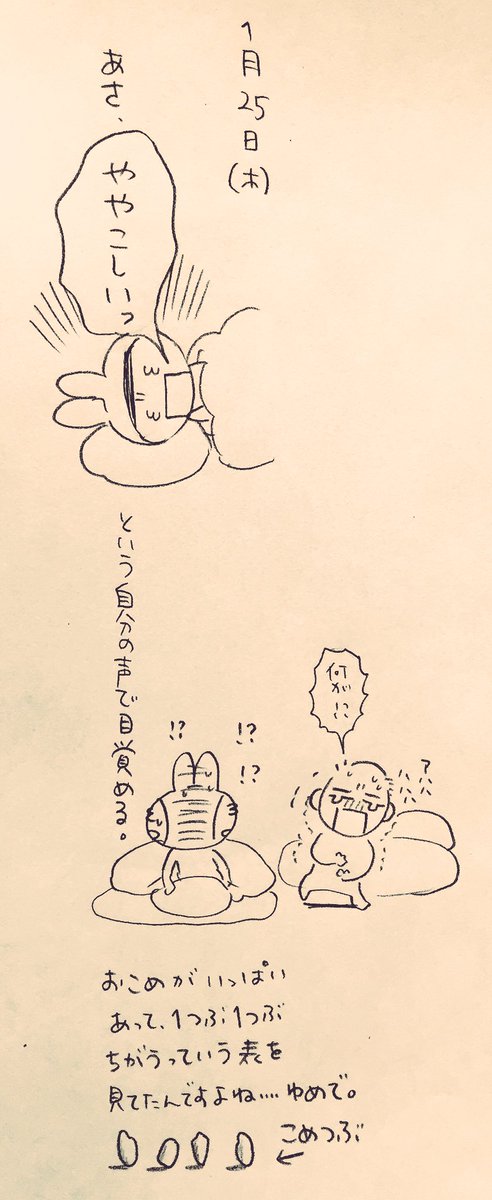 1月25日(木)
あさ、
ややこしいっ
という自分の声で目覚める。
何が!?
!?
!?
!?
?
おこめがいっぱい
あって、1つぶ1つぶ
ちがうっていう表を
見てたんですよね……ゆめで。
こめつぶ